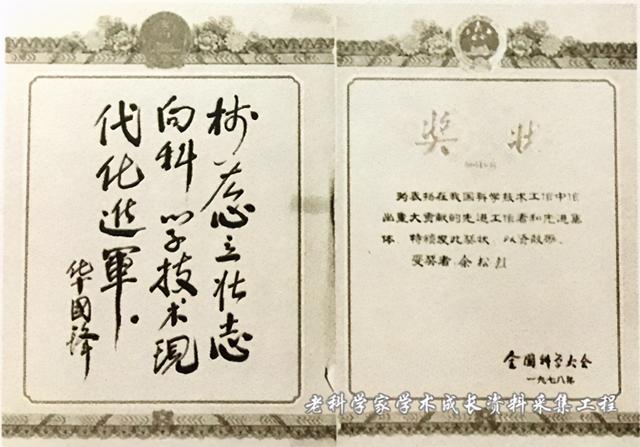 树雄心立壮志
向科学技术現
代化進軍。
华國锋
奖状
为表扬在我国科学技术工作中作
出重大贡献的先进工作者和先进集
体，特颁发此奖状，以资鼓励。
受奖者：余松烈
全国科学大会
一九七八年
老科学家学术成长资料采集工程